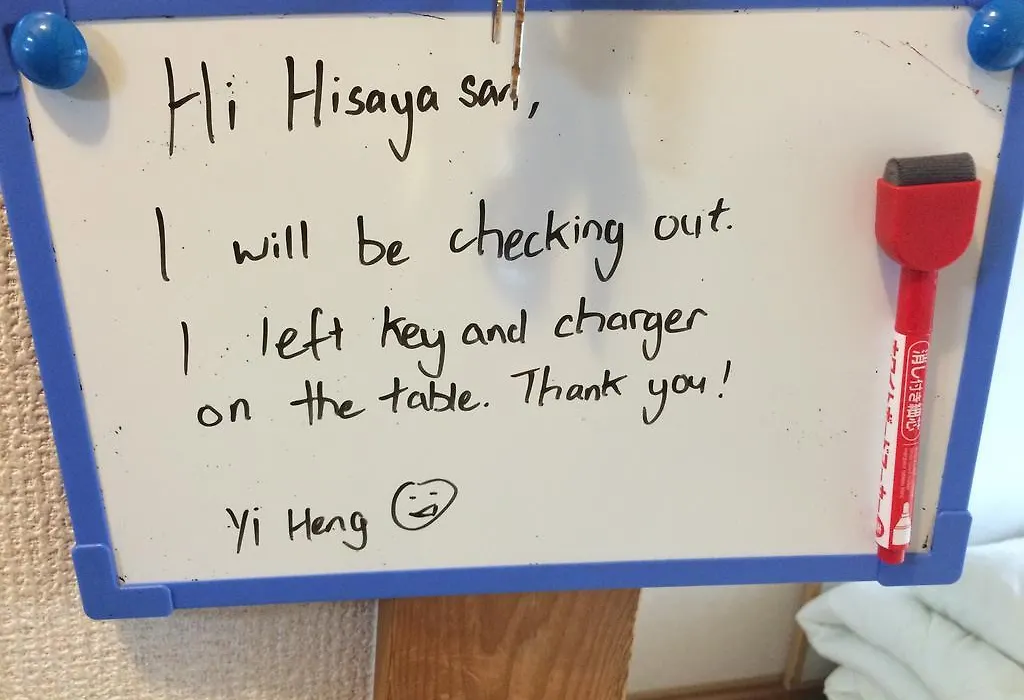 Hi Hisaya san,
I will be checking out.
I left key and charger
on the table. Thank you!
Yi Heng
消し付き細心
ホワイトボードマーカー